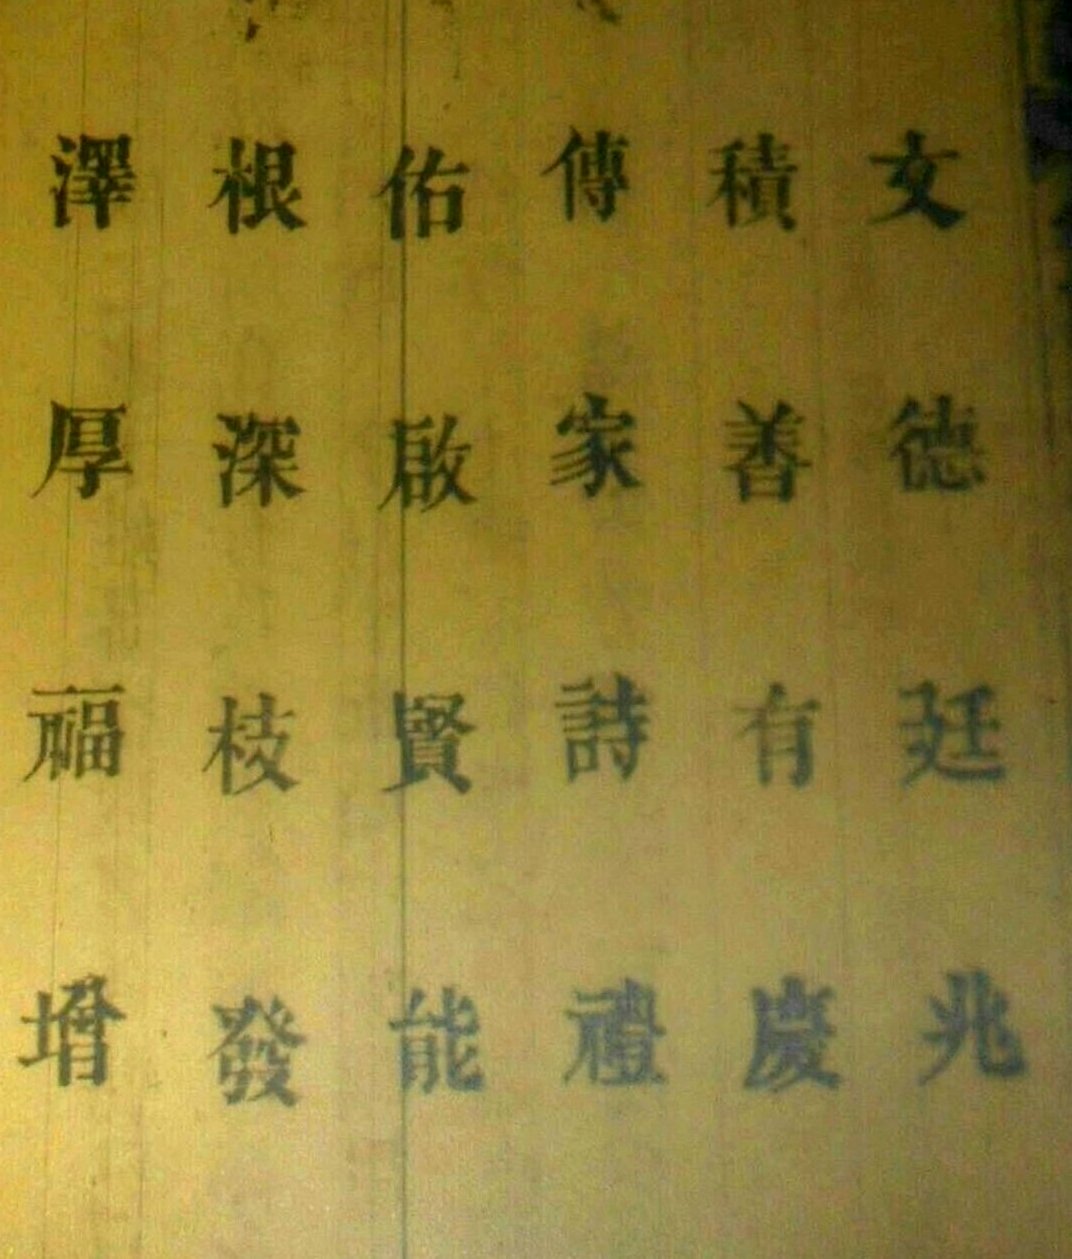 文德廷兆
積善有慶
傳家詩禮
佑啟賢能
根深枝發
澤厚福增